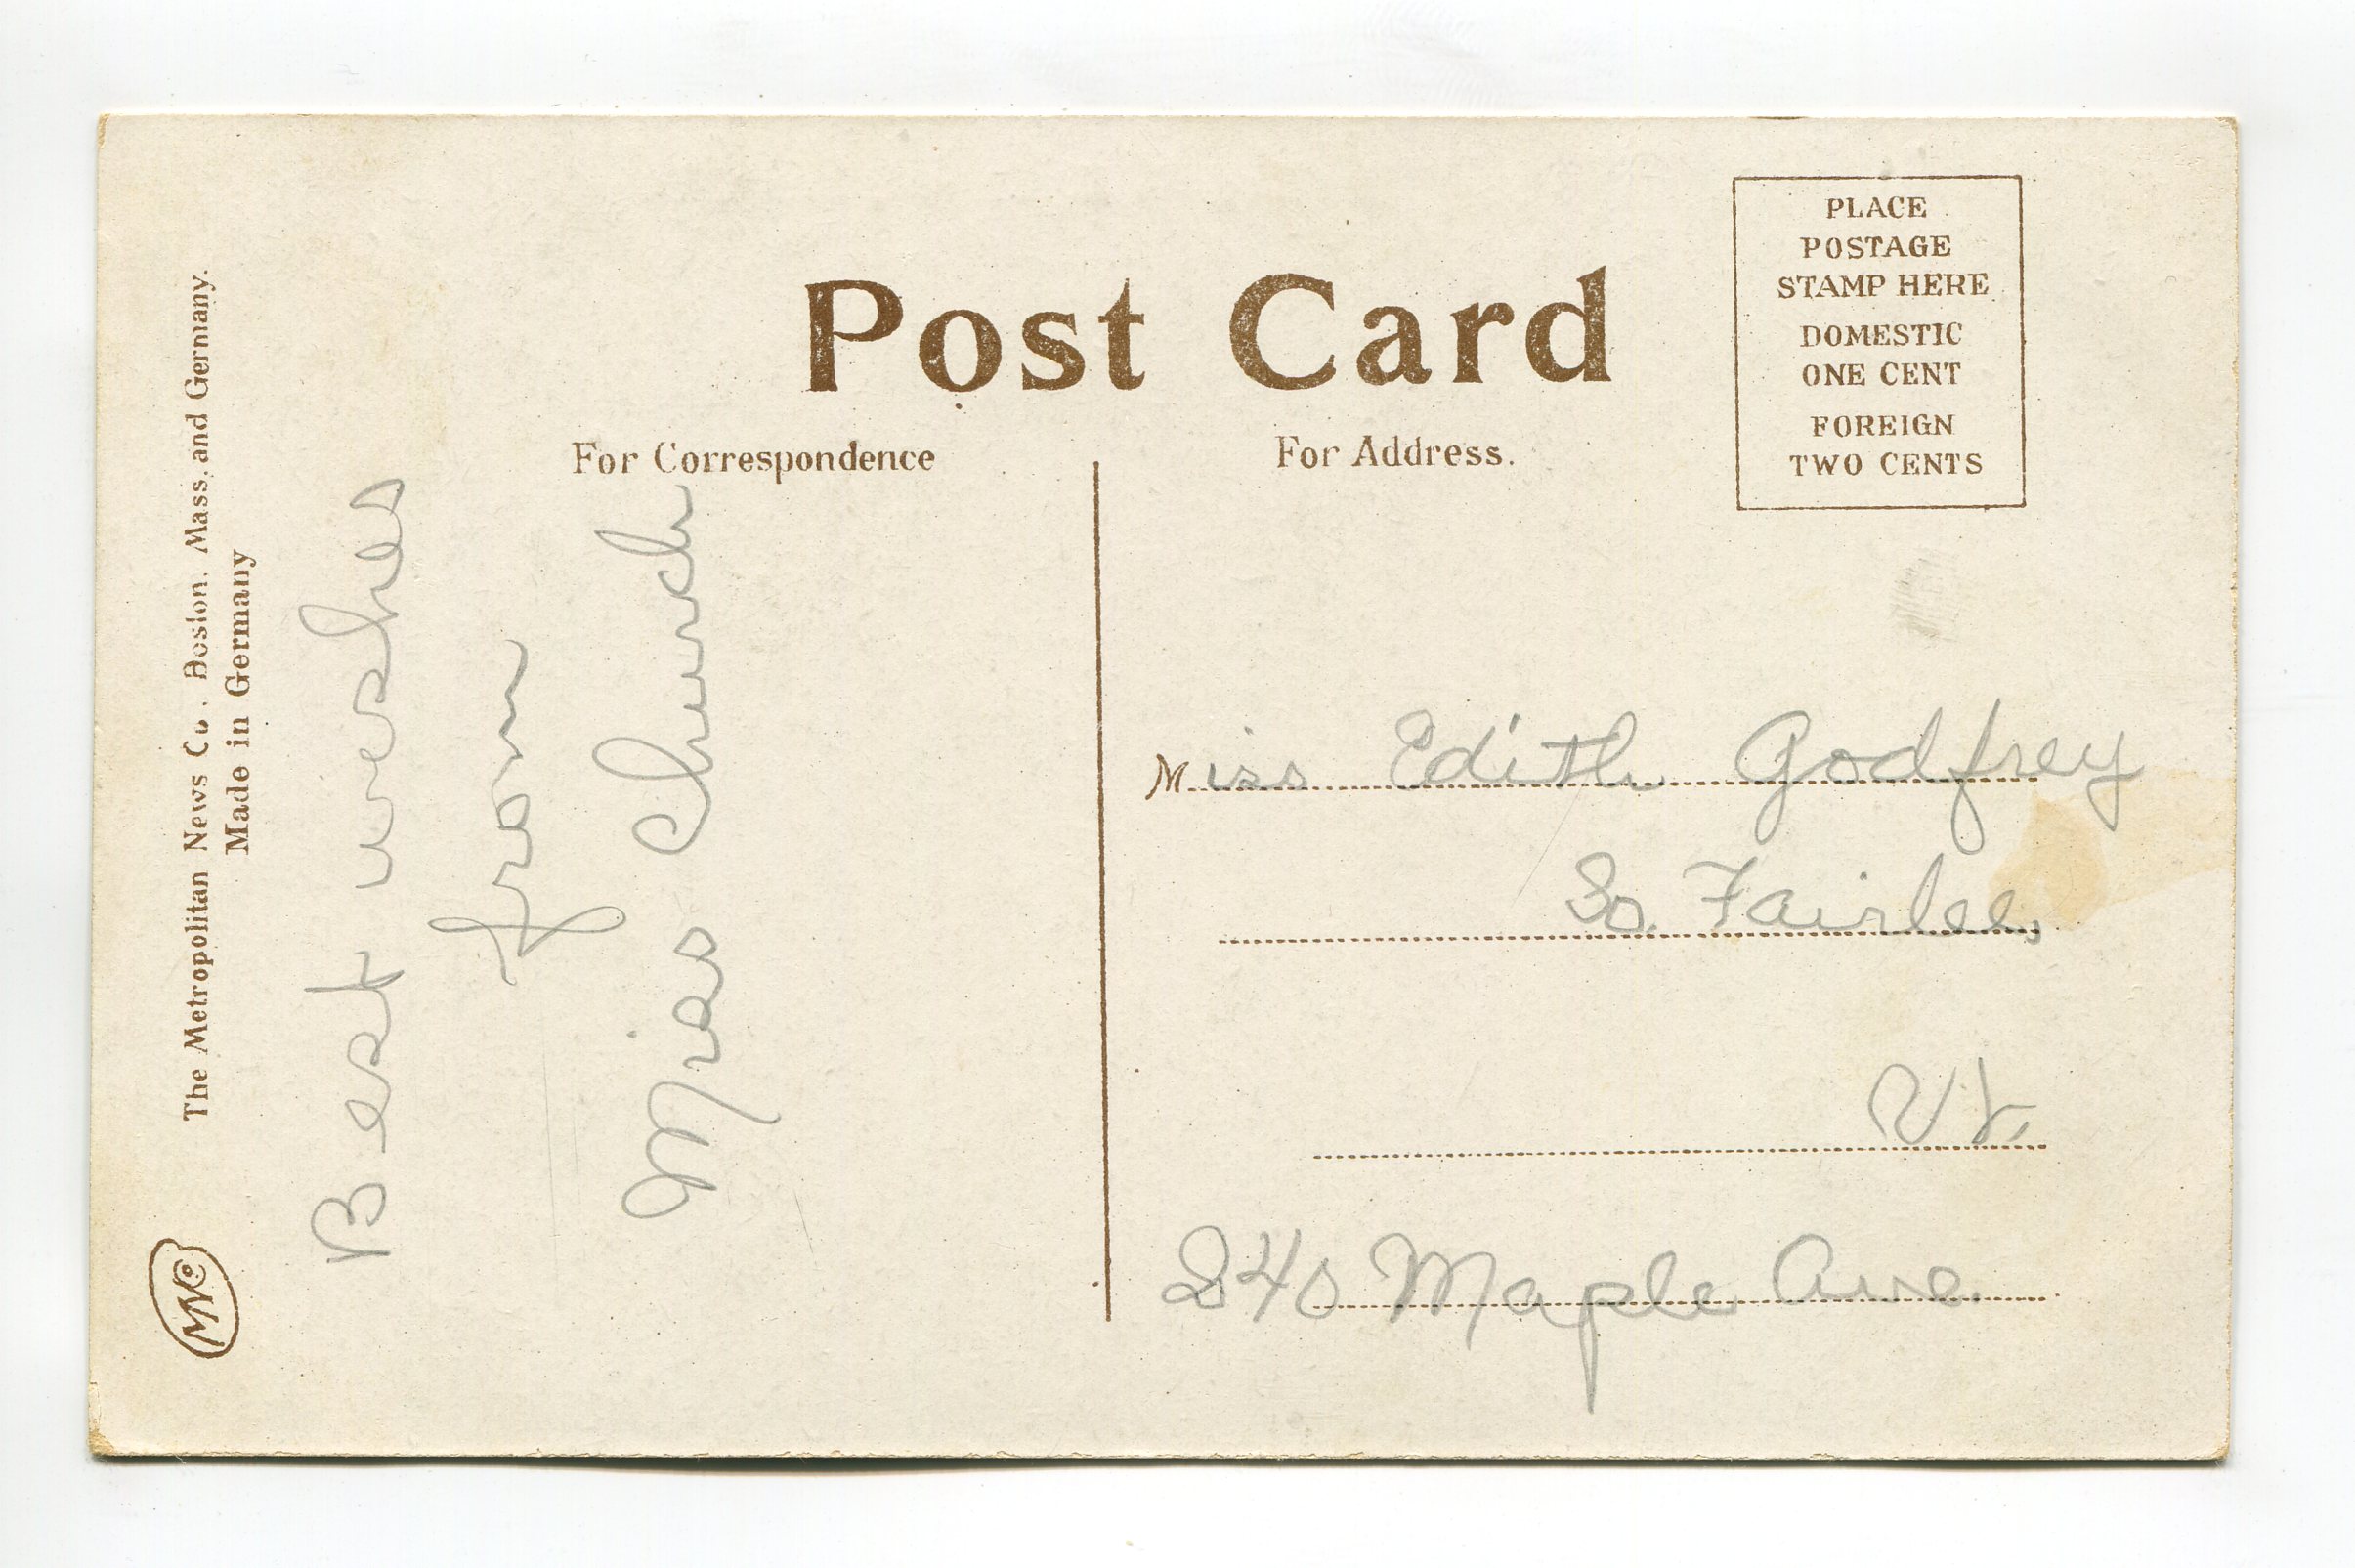 The Metropolitan News Co., Boston, Mass. and Gernany.
Made in Germany
MNCo
Post Card
For Correspondence
For Address.
PLACE
POSTAGE
STAMP HERE
DOMESTIC
ONE CENT
FOREIGN
TWO CENTS
Best wishes
from
Miss Church
Miss Edith Godfrey
So. Fairlee,
Vt.
240 Maple Ave.